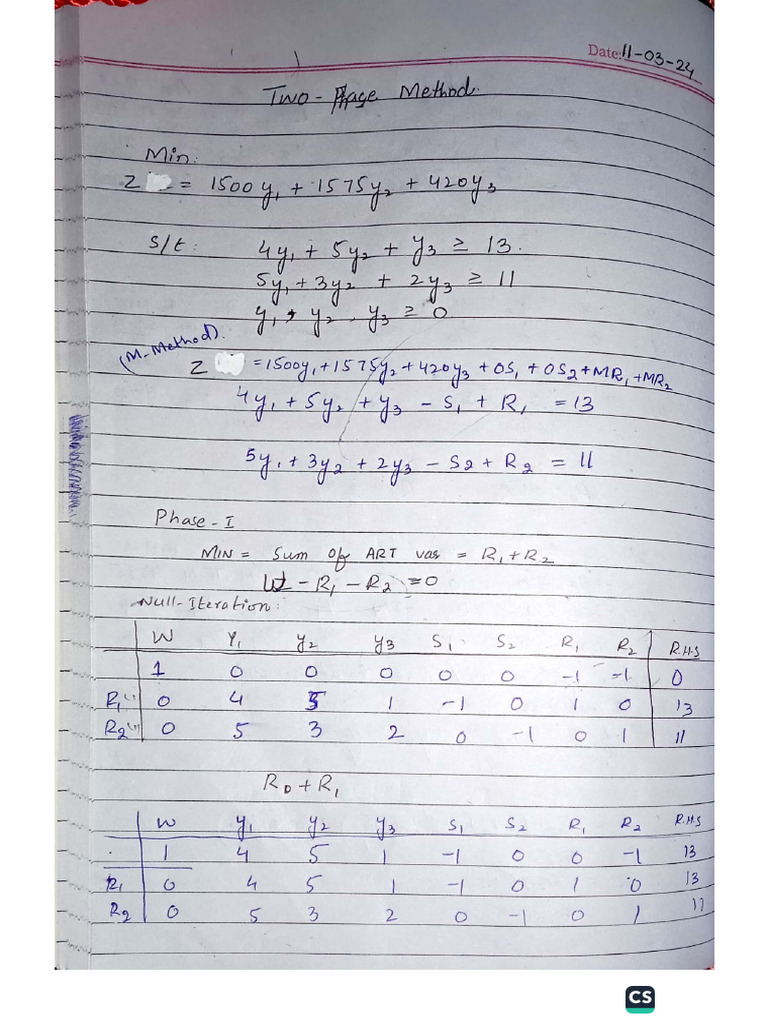 Date: 11-03-24
Two-Phase Method.
Min:
Z = 1500y₁ + 1575y₂ + 420y₃
S/t: 4y₁ + 5y₂ + y₃ ≥ 13.
5y₁ + 3y₂ + 2y₃ ≥ 11
y₁, y₂, y₃ ≥ 0
(M-Method).
Z = 1500y₁ + 1575y₂ + 420y₃ + 0S₁ + 0S₂ + MR₁ + MR₂
4y₁ + 5y₂ + y₃ - S₁ + R₁ = 13
5y₁ + 3y₂ + 2y₃ - S₂ + R₂ = 11
Phase-I
MIN = Sum of ART var = R₁ + R₂
W - R₁ - R₂ = 0
Null-Iteration:
W Y₁ y₂ y₃ S₁ S₂ R₁ R₂ R.H.S
1 0 0 0 0 0 -1 -1 0
R₁⁽¹⁾ 0 4 5 1 -1 0 1 0 13
R₂⁽¹⁾ 0 5 3 2 0 -1 0 1 11
R₀ + R₁
W y₁ y₂ y₃ S₁ S₂ R₁ R₂ R.H.S
1 4 5 1 -1 0 0 -1 13
R₁ 0 4 5 1 -1 0 1 0 13
R₂ 0 5 3 2 0 -1 0 1 11
CS